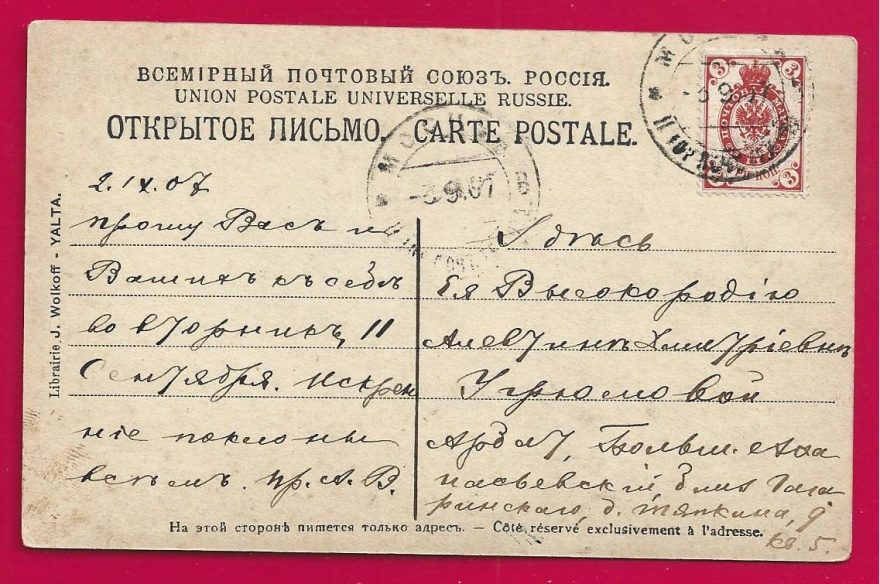 ВСЕМІРНЫЙ ПОЧТОВЫЙ СОЮЗЪ. РОССІЯ.
UNION POSTALE UNIVERSELLE RUSSIE.
ОТКРЫТОЕ ПИСЬМО. CARTE POSTALE.
МОСКВА
-3.9.07
3
3
3
3
Librairie J. Wolkoff - YALTA.
2.IX.07
прошу Васъ и
Вашихъ къ себѣ
во вторникъ, 11
Сентября. Искрен
ніе поклоны
всѣмъ. Пр. А. В.
Здѣсь
Ея Высокородію
Алевтинѣ Дмитріевнѣ
Угрюмовой
Арбатъ, Больш. Аѳа
насьевскій, близ Гага
ринскаго, д. Тяпкина, 9
кв. 5.
На этой сторонѣ пишется только адресъ. — Côté réservé exclusivement à l'adresse.